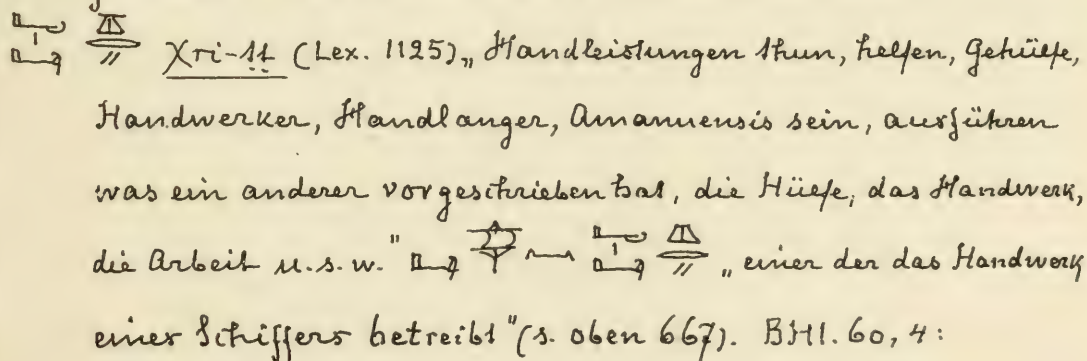 χri-ā́ (Lex. 1125) „Handleistungen thun, helfen, Gehülfe,
Handwerker, Handlanger, Amanuensis sein, ausführen
was ein anderer vorgeschrieben hat, die Hülfe, das Handwerk,
die Arbeit u. s. w." „einer der das Handwerk
eines Schiffers betreibt" (s. oben 667). BHI. 60, 4: